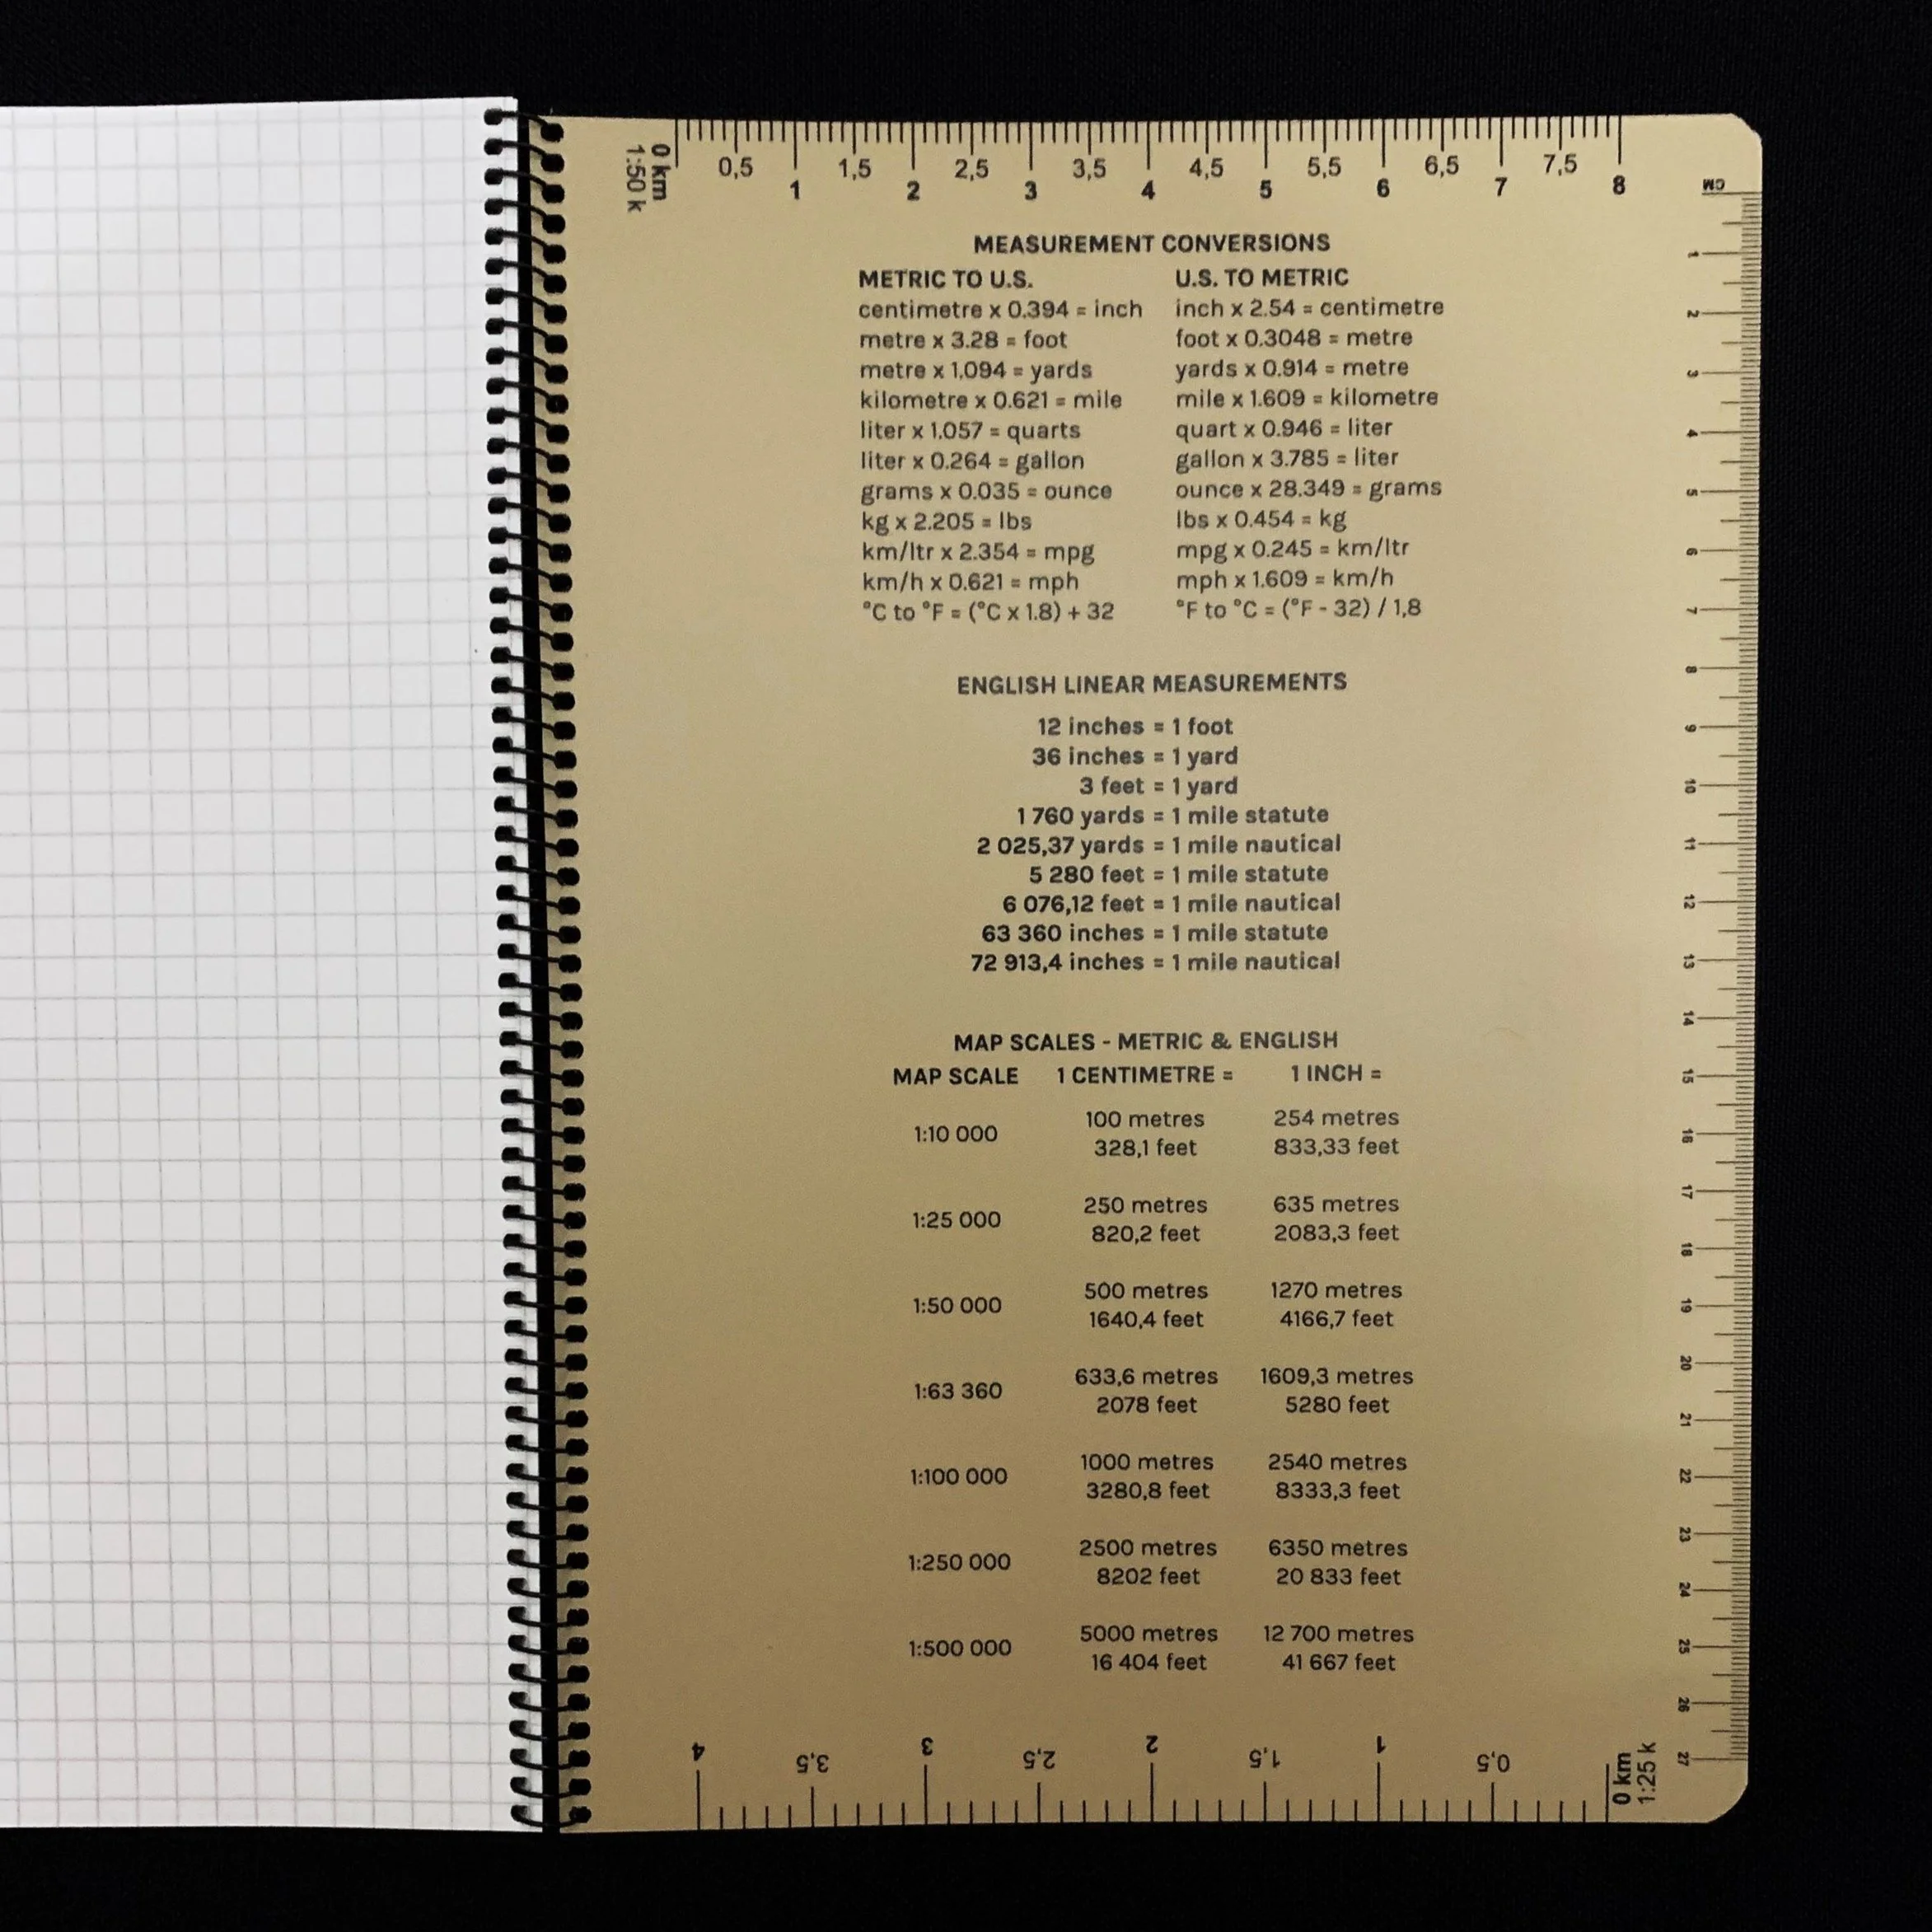 0 km
1:50 k
0,5 1 1,5 2 2,5 3 3,5 4 4,5 5 5,5 6 6,5 7 7,5 8
CM
1 2 3 4 5 6 7 8 9 10 11 12 13 14 15 16 17 18 19 20 21 22 23 24 25 26 27
MEASUREMENT CONVERSIONS
METRIC TO U.S.
centimetre x 0.394 = inch
metre x 3.28 = foot
metre x 1.094 = yards
kilometre x 0.621 = mile
liter x 1.057 = quarts
liter x 0.264 = gallon
grams x 0.035 = ounce
kg x 2.205 = lbs
km/ltr x 2.354 = mpg
km/h x 0.621 = mph
°C to °F = (°C x 1.8) + 32
U.S. TO METRIC
inch x 2.54 = centimetre
foot x 0.3048 = metre
yards x 0.914 = metre
mile x 1.609 = kilometre
quart x 0.946 = liter
gallon x 3.785 = liter
ounce x 28.349 = grams
lbs x 0.454 = kg
mpg x 0.245 = km/ltr
mph x 1.609 = km/h
°F to °C = (°F - 32) / 1,8
ENGLISH LINEAR MEASUREMENTS
12 inches = 1 foot
36 inches = 1 yard
3 feet = 1 yard
1 760 yards = 1 mile statute
2 025,37 yards = 1 mile nautical
5 280 feet = 1 mile statute
6 076,12 feet = 1 mile nautical
63 360 inches = 1 mile statute
72 913,4 inches = 1 mile nautical
MAP SCALES - METRIC & ENGLISH
MAP SCALE 1 CENTIMETRE = 1 INCH =
100 metres 254 metres
1:10 000
328,1 feet 833,33 feet
250 metres 635 metres
1:25 000
820,2 feet 2083,3 feet
500 metres 1270 metres
1:50 000
1640,4 feet 4166,7 feet
633,6 metres 1609,3 metres
1:63 360
2078 feet 5280 feet
1000 metres 2540 metres
1:100 000
3280,8 feet 8333,3 feet
2500 metres 6350 metres
1:250 000
8202 feet 20 833 feet
5000 metres 12 700 metres
1:500 000
16 404 feet 41 667 feet
4 3,5 3 2,5 2 1,5 1 0,5
0 km
1:25 k